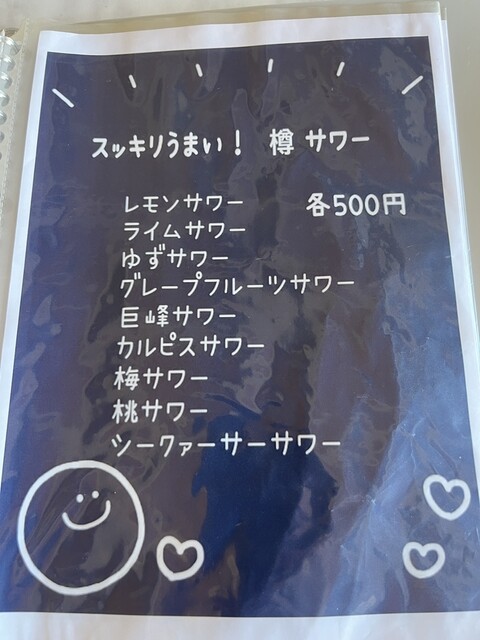 スッキリうまい! 樽 サワー
レモンサワー 各500円
ライムサワー
ゆずサワー
グレープフルーツサワー
巨峰サワー
カルピスサワー
梅サワー
桃サワー
シークァーサーサワー